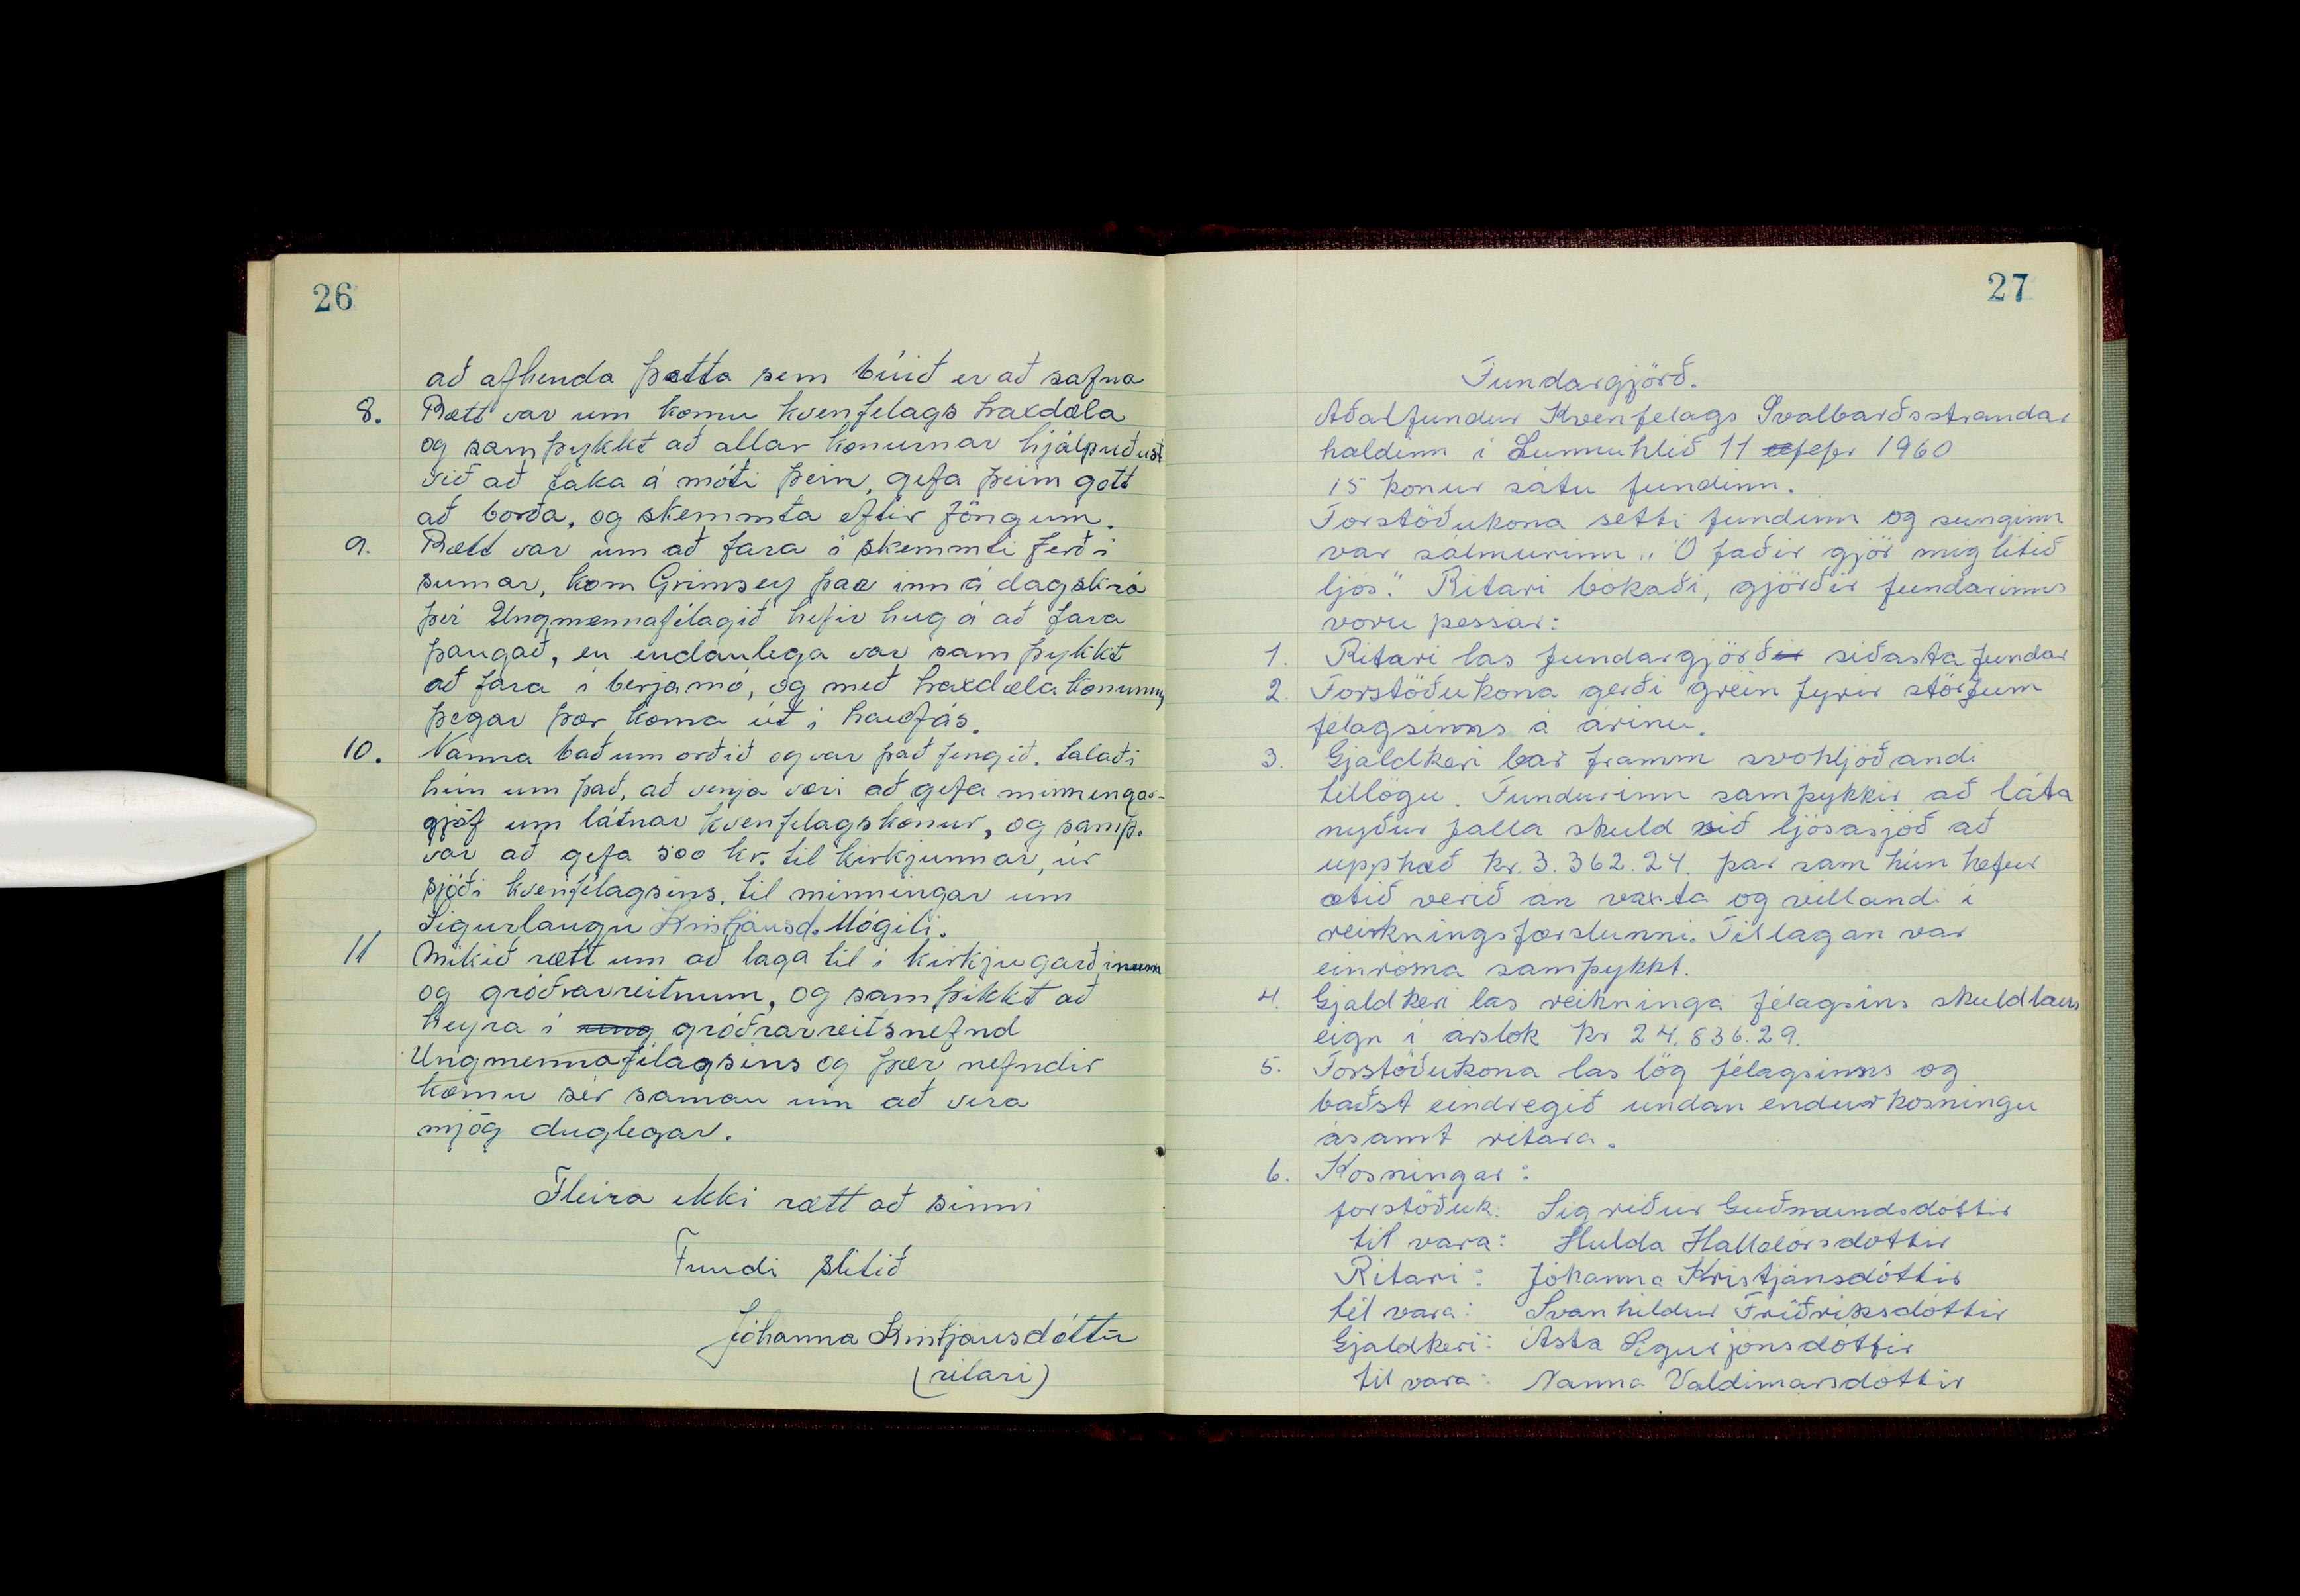 26
að afhenda þetta sem búið er að safna
8. Rætt var um komu kvenfelags Laxdæla
og samþykkt að allar konurnar hjálpuðust
við að taka á móti þeim, gefa þeim gott
að borða, og skemmta eftir föngum.
9. Rætt var um að fara í skemmti ferð í
sumar, kom Grímsey þar inn á dagskrá
því Ungmennafélagið hefir hug á að fara
þangað, en endanlega var samþykkt
að fara í berjamó, og með Laxdæla konunum
þegar þær koma út í Laufás.
10. Nanna bað um orðið og var það fengið. talaði
hún um það, að venja væri að gefa minningar-
gjöf um látnar kvenfelagskonur, og samþ.
var að gefa 500 kr. til kirkjunnar, úr
sjóði kvenfélagsins, til minningar um
Sigurlaugu Kristjánsd. Mógili.
11 Mikið rætt um að laga til í kirkjugarðinum
og gróðrarreitnum, og samþikkt að
keyra í gróðrarreitsnefnd
Ungmennafélagsins og þær nefndir
komu sér saman um að vera
mjög duglegar.
Fleira ekki rætt að sinni
Fundi slitið
Jóhanna Kristjánsdóttir
(ritari)
27
Fundargjörð.
Aðalfundur Kvenfelags Svalbarðsstrandar
haldinn í Sunnuhlíð 11 febr 1960
15 konur sátu fundinn.
Forstöðukona setti fundinn og sunginn
var sálmurinn „Ó faðir gjör mig lítið
ljós." Ritari bókaði, gjörðir fundarinns
voru þessar:
1. Ritari las fundargjörð síðasta fundar
2. Forstöðukona gerði grein fyrir störfum
félagsinns á árinu.
3. Gjaldkeri bar framm svohljóðandi
tillögu. Fundurinn samþykkir að láta
nyður falla skuld við ljósasjóð að
upphæð kr. 3.362.24. þar sem hún hefur
ætið verið án vaxta og villandi í
reikningsfærslunni. Tillagan var
einróma samþykkt.
4. Gjaldkeri las reikninga félagsins skuldlaus
eign í árslok kr 24.836.29.
5. Forstöðukona las lög félagsinns og
baðst eindregið undan endurkosningu
ásamt ritara.
6. Kosningar:
forstöðuk: Sigriður Guðmundsdóttir
til vara: Hulda Halldórsdóttir
Ritari: Jóhanna Kristjánsdóttir
til vara: Svanhildur Friðriksdóttir
Gjaldkeri: Ásta Sigurjónsdóttir
til vara: Nanna Valdimarsdóttir